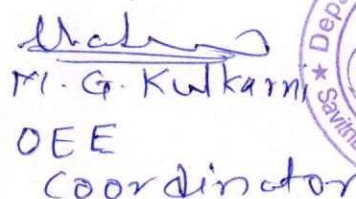 M. G. Kulkarni
OEE
Coordinator
★ Depa
Savitri